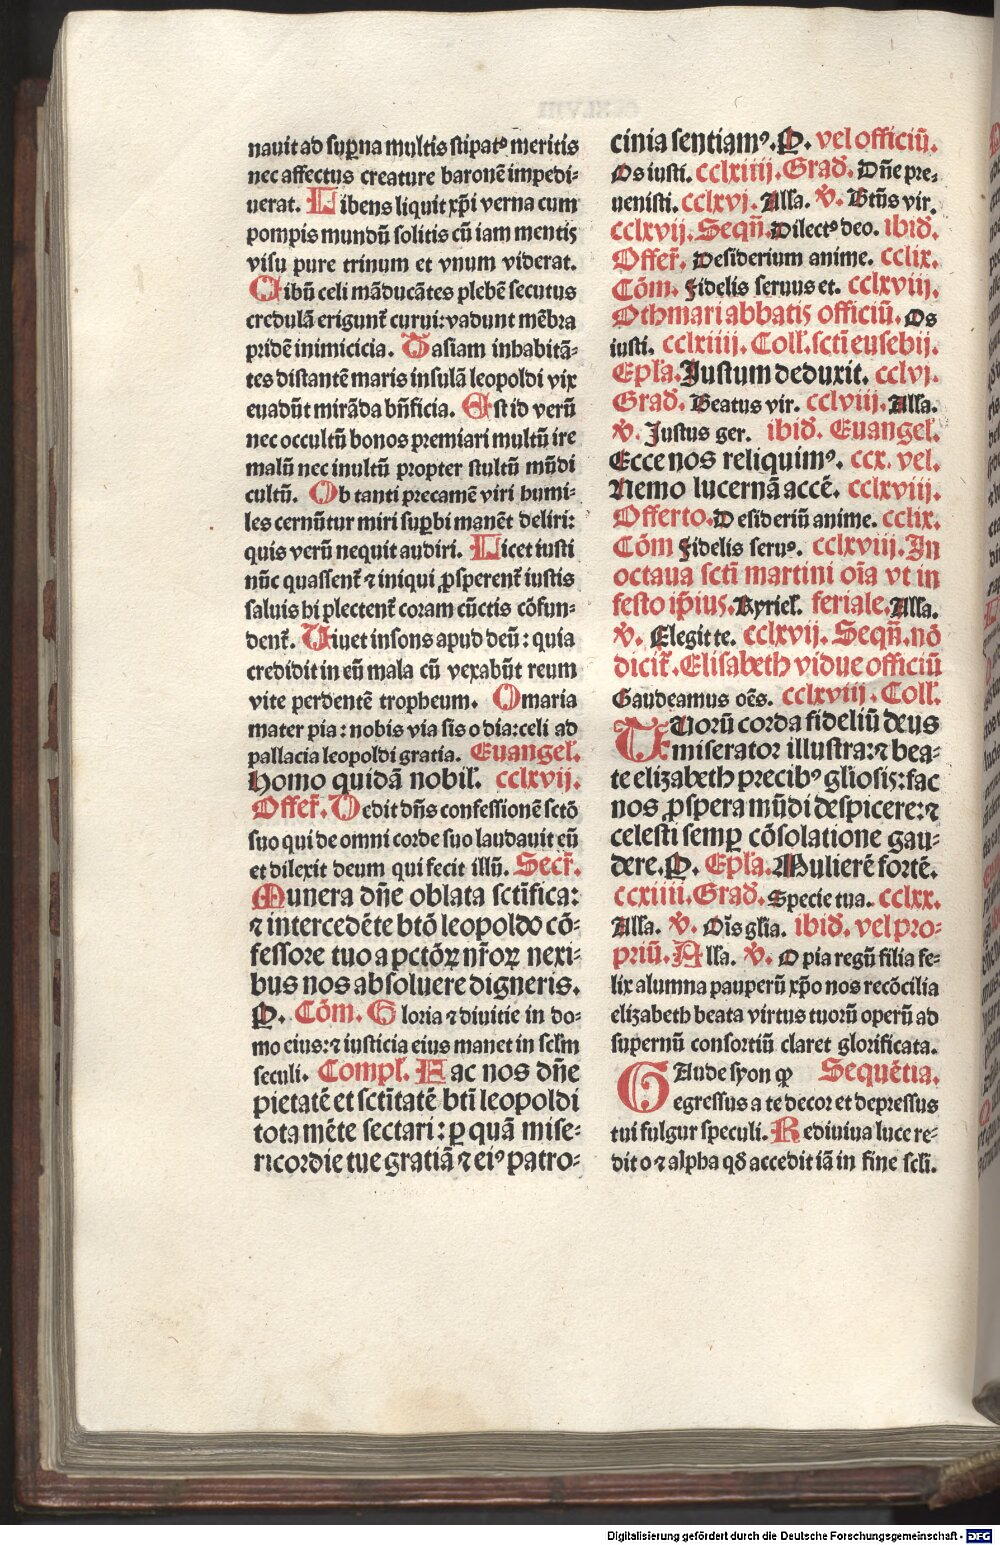 nauit ad suꝑna multis stipatꝰ meritis
nec affectus creature baronē impedi⸗
uerat. Libens liquit xp̄i verna cum
pompis mundū solitis cū iam mentis
visu pure trinum et vnum viderat.
Cibū celi māducātes plebē secutus
credulā erigunt᷑ curui: vadunt mēbra
pridē inimicicia. Tasiam inhabitā⸗
tes distantē maris insulā leopoldi vix
euadūt mirāda bn̄ficia. Est id verū
nec occultū bonos premiari multū ire
malū nec inultū propter stultū mūdi
cultū. Ob tanti precamē viri humi⸗
les cernūtur miri suꝑbi manēt deliri:
quis verū nequit audiri. Licet iusti
nūc quassent᷑ ⁊ iniqui ꝓsperent᷑ iustis
saluis hi plectent᷑ coram cūctis cōfun⸗
dent᷑. Viuet insons apud deū: quia
credidit in eū mala cū vexabūt reum
vite perdentē tropheum. O maria
mater pia: nobis via sis o dia: celi ad
pallacia leopoldi gratia. Euangel̄.
Homo quidā nobil̄. cclxvij.
Offer̄. Dedit dn̄s confessionē sctō
suo qui de omni corde suo laudauit eū
et dilexit deum qui fecit illū. Secr̄.
Munera dn̄e oblata sctīfica:
⁊ intercedēte btō leopoldo cō⸗
fessore tuo a pctōꝝ nr̄oꝝ nexi⸗
bus nos absoluere digneris.
P. Cōm. Gloria ⁊ diuitie in do⸗
mo eius: ⁊ iusticia eius manet in sclm̄
seculi. Compl̄. Fac nos dn̄e
pietatē et sctītatē btī leopoldi
tota mēte sectari: ꝑ quā mise⸗
ricordie tue gratiā ⁊ eiꝰ patro⸗
cinia sentiamꝰ. P. vel officiū.
Os iusti. cclxiiij. Grad̄. Dn̄e pre⸗
uenisti. cclxvj. Alla. v̄. Btūs vir.
cclxvij. Seqn̄. Dilectꝰ deo. ibid̄.
Offer̄. Desiderium anime. cclix.
Cōm. Fidelis seruus et. cclxviij.
Othmari abbatis officiū. Os
iusti. cclxiiij. Coll̄. sctī eusebij.
Epl̄a. Justum deduxit. cclvj.
Grad̄. Beatus vir. cclviij. Alla.
v̄. Justus ger. ibid̄. Euangel̄.
Ecce nos reliquimꝰ. ccx. vel.
Nemo lucernā accē. cclxviij.
Offerto. Desideriū anime. cclix.
Cōm Fidelis seruꝰ. cclxviij. In
octaua sctī martini oīa vt in
festo ip̄ius. Kyriel̄. feriale. Alla.
v̄. Elegit te. cclxvij. Seqn̄. nō
dicit᷑. Elisabeth vidue officiū
Gaudeamus oēs. cclxviij. Coll̄.
TUorū corda fideliū deus
miserator illustra: ⁊ bea⸗
te elizabeth precibꝰ gliosis: fac
nos ꝓspera mūdi despicere: ⁊
celesti semꝑ cōsolatione gau⸗
dere. P. Epl̄a. Mulierē fortē.
ccxiiij. Grad̄. Specie tua. cclxx.
Alla. v̄. Oīs gl̄ia. ibid̄. vel pro⸗
priū. Alla. v̄. O pia regū filia fe⸗
lix alumna pauperū xp̄o nos recōcilia
elizabeth beata virtus tuorū operū ad
supernū consortiū claret glorificata.
GAude syon ꝙ Sequētia.
egressus a te decor et depressus
tui fulgur speculi. Rediuiua luce re⸗
dit o ⁊ alpha qd̄ accedit iā in fine scl̄i.
Digitalisierung gefördert durch die Deutsche Forschungsgemeinschaft - DFG